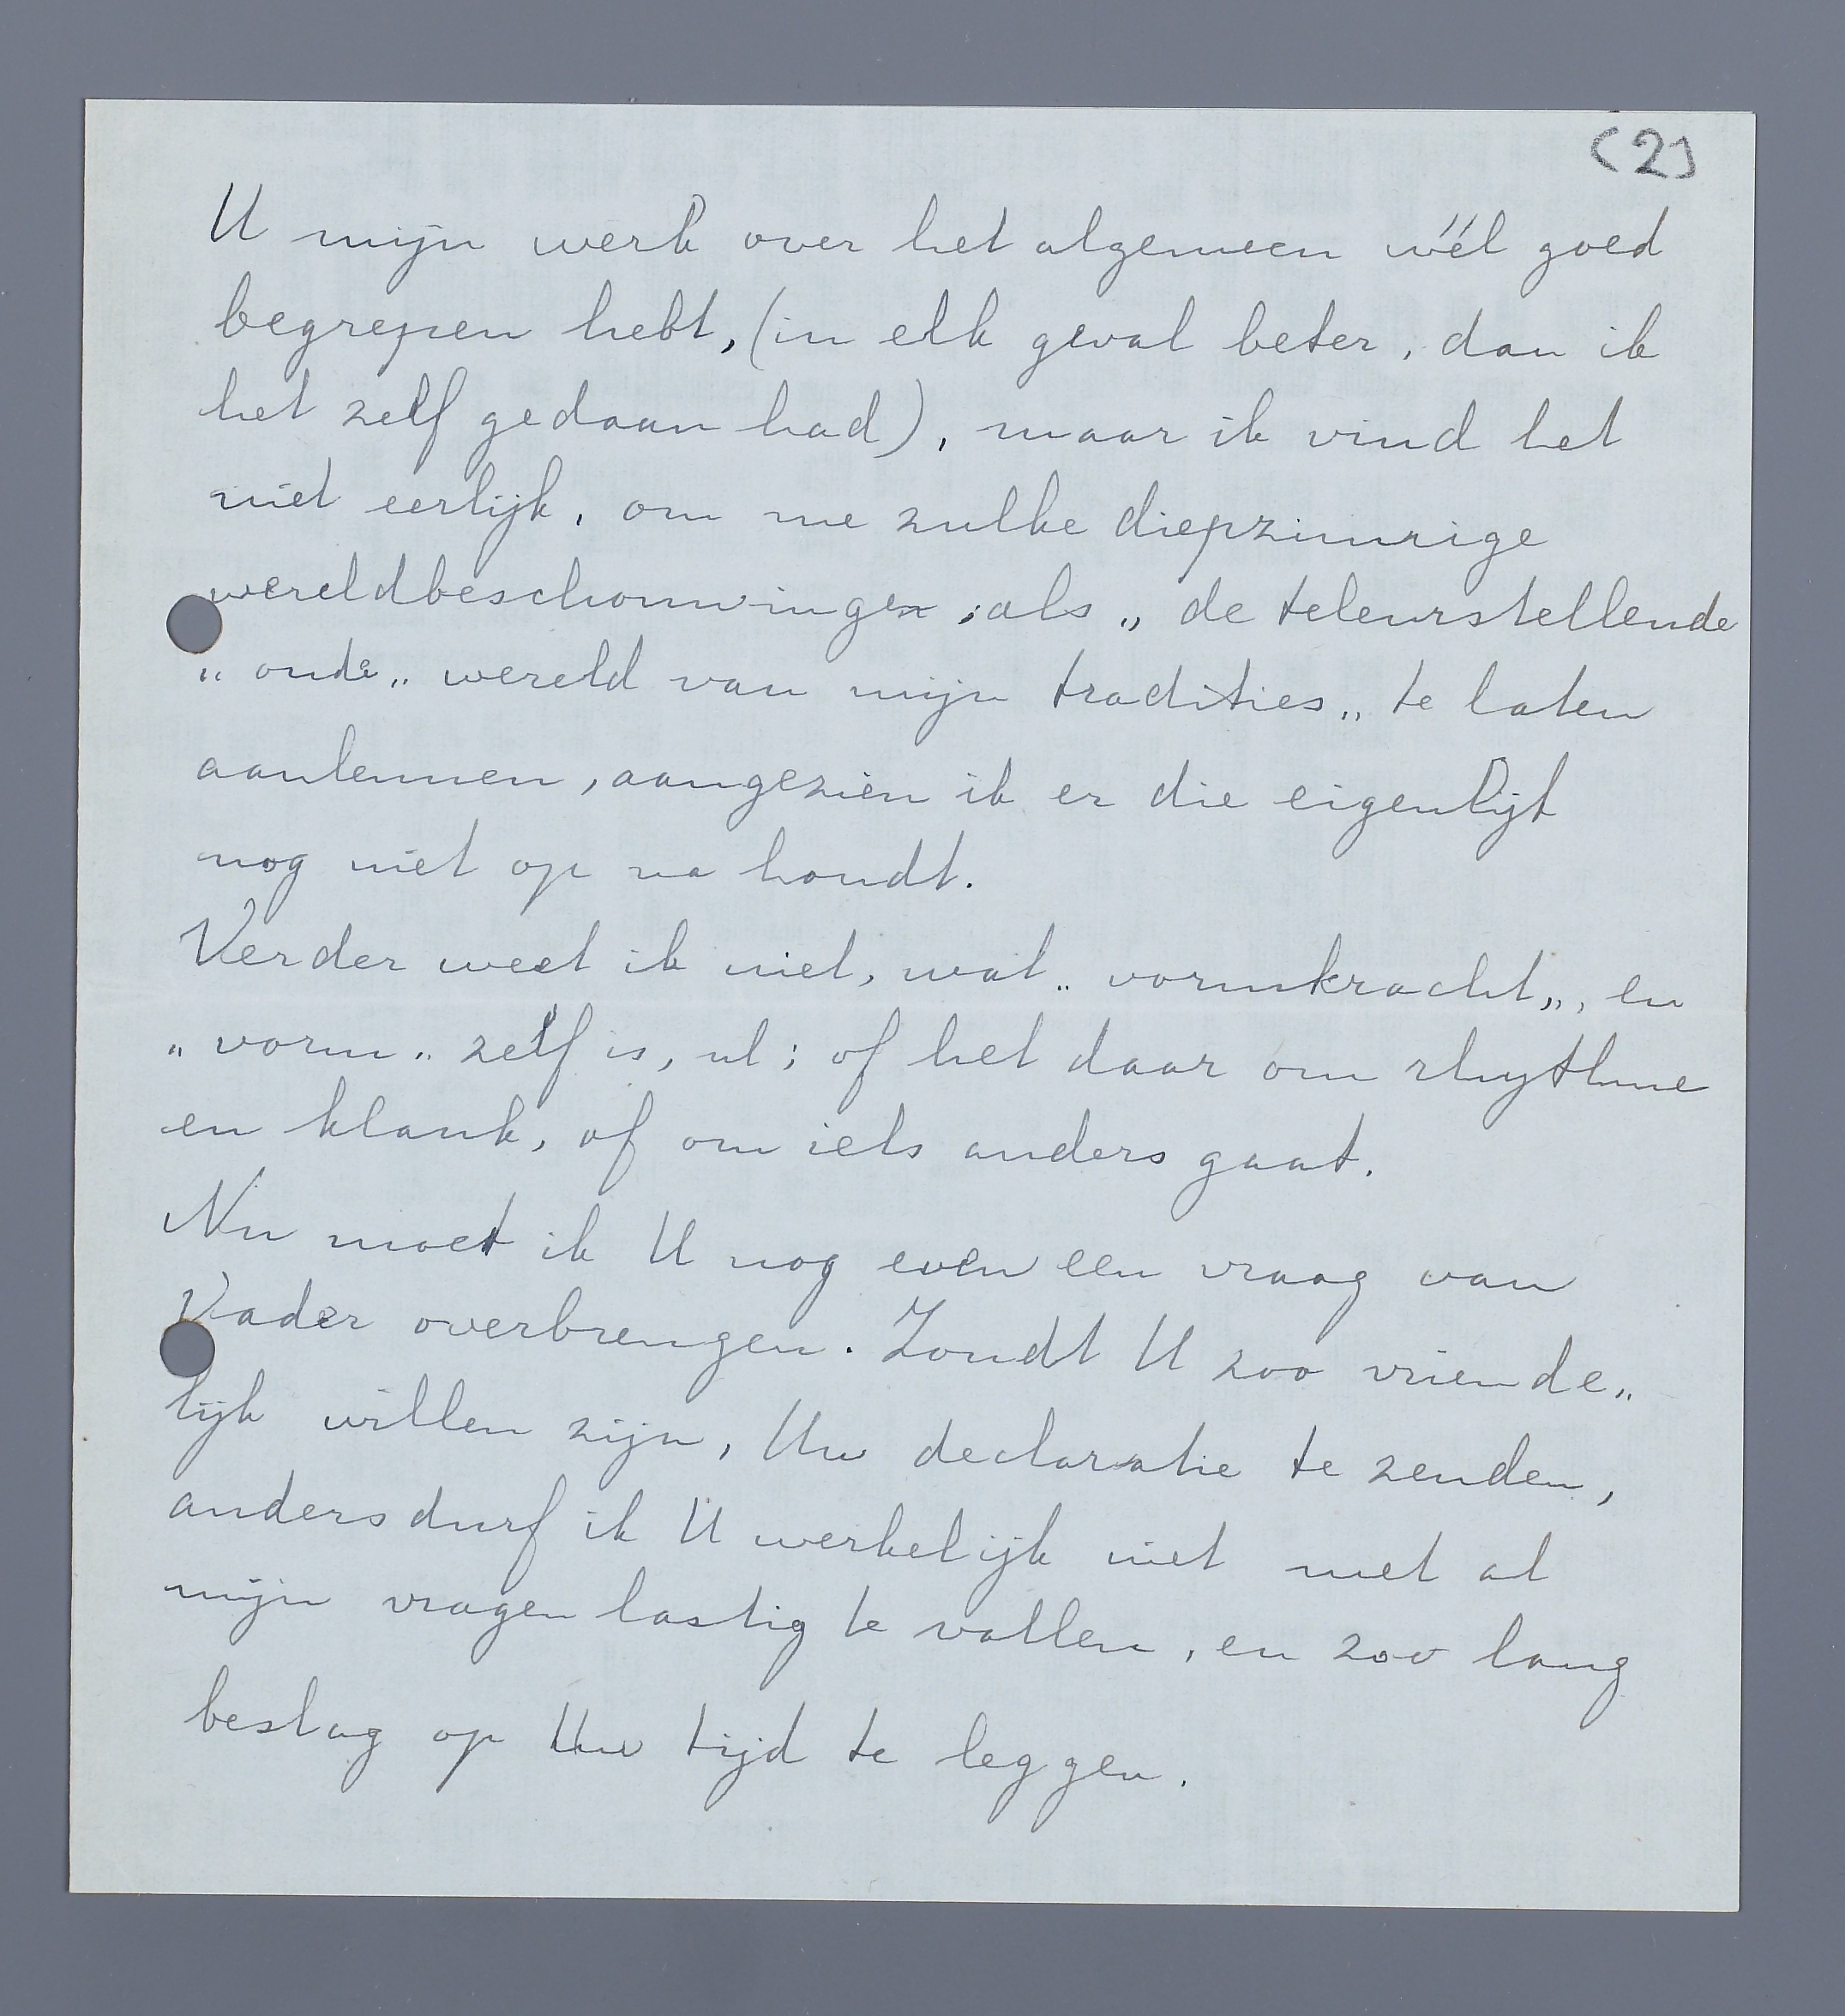 (2)
U mijn werk over het algemeen wél goed
begrepen hebt, (in elk geval beter, dan ik
het zelf gedaan had), maar ik vind het
niet eerlijk, om me zulke diepzinnige
wereldbeschouwingen, als „de teleurstellende
„oude„ wereld van mijn tradities„ te laten
aanlennen, aangezien ik er die eigenlijk
nog niet op na houdt.
Verder weet ik niet, wat „vormkracht„, en
„vorm„ zelf is, nl; of het daar om rhythme
en klank, of om iets anders gaat.
Nu moet ik U nog even een vraag van
Vader overbrengen. Zoudt U zoo vriende„
lijk willen zijn, Uw declaratie te zenden,
anders durf ik U werkelijk niet met al
mijn vragen lastig te vallen, en zoo lang
beslag op Uw tijd te leggen.